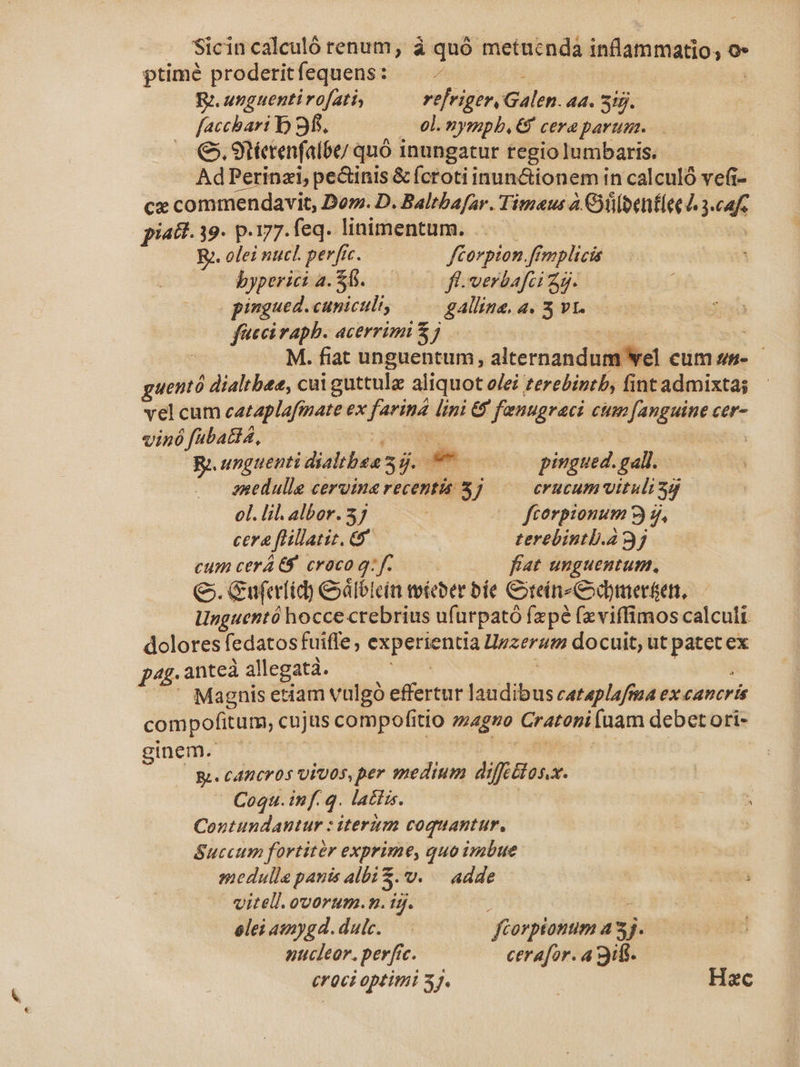 Sic in calculó renum, à quó metuenda inflammatio, o-
ptimè proderit ſequens:
℞. unguenti roſati, refriger, Galen. aa. ʒiij.
ſacchari ♄ ℈ß. ol. nymph. & ceræ parum.
S. Nierenſalbe/ quó inungatur regio lumbaris.
Ad Perinæi, pectinis & ſcroti inunctionem in calculó veſi-
cæ commendavit, Dom. D. Balthaſar. Timæus à Güldenklee l. 3. caſ.
piact. 39. p. 177. ſeq. linimentum.
℞. olei nucl. perſic. ſcorpion. ſimplicis
hyperici a. ℥ß. fl. verbaſci ʒij.
pingued. cuniculi, gallinæ, a. ʒ vi.
ſucci raph. acerrimi ℥j
M. fiat unguentum, alternandum vel cum un-
guentó dialthææ, cui guttulæ aliquot olei terebinth, ſint admixtæ;
vel cum cataplaſmate ex farinâ lini & fœnugræci cum ſanguine cer-
vinó ſubactâ,
℞. unguenti dialthææ ʒ ij. pingued. gall.
medullæ cervinæ recentis ℥j crucum vituli ʒij
ol. lil. albor. ʒj ſcorpionum ℈ ij,
ceræ ſtillatit. & terebinth. à ℈j
cum cerâ & croco q. ſ. fiat unguentum.
S. Euſerlich Sälblein wieder die Stein-Schmertzen.
Unguentó hocce crebrius uſurpató ſæpè ſæviſſimos calculi
dolores ſedatos fuiſſe, experientia Unzerum docuit, ut patet ex
pag. anteà allegatâ.
Magnis etiam vulgò effertur laudibus cataplaſma ex cancris
compoſitum, cujus compoſitio magno Cratoni ſuam debet ori-
ginem.
℞. cancros vivos, per medium diſſectos, x.
Coqu. in ſ. q. lactis.
Contundantur : iterùm coquantur.
Succum fortitèr exprime, quo imbue
medullæ panis albi ℥. v. adde
vitell. ovorum. n. iij.
olei amygd. dulc. ſcorpionum a ʒj.
nucleor. perſic. ceræ for. a ℈iß.
croci optimi ʒj.
Hæc